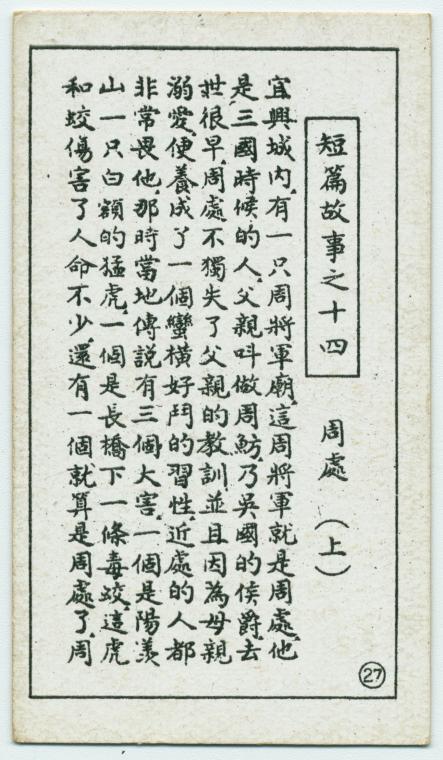 短篇故事之十四
周處（上）
宜興城內，有一只周將軍廟，這周將軍就是周處，他
是三國時候的人，父親叫做周魴，乃吳國的侯爵，去
世很早，周處不獨失了父親的教訓並且因為母親
溺愛便養成了一個蠻橫好鬥的習性，近處的人都
非常畏他，那時當地傳說有三個大害，一個是陽羨
山一只白額的猛虎，一個是長橋下一條毒蛟，這虎
和蛟傷害了人命不少，還有一個就算是周處了，周
27